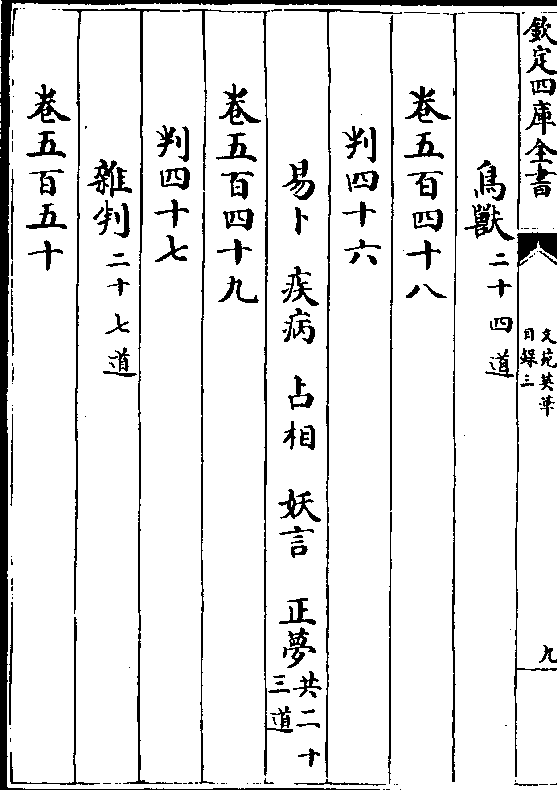 欽定四庫全書
文苑英華
目録三
九
鳥獸二十四道
卷五百四十八
判四十六
易卜 疾病 占相 妖言 正夢共二十三道
卷五百四十九
判四十七
雜判二十七道
卷五百五十